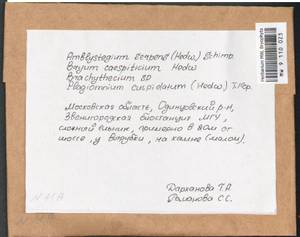 Amblystegium serpens (Hedw.) Schimp.
Bryum caespiticium Hedw.
Brachythecium sp.
Plagiomnium cuspidatum (Hedw.) T.Kop.
Московская область, Одинцовский р-н,
Звенигородская биостанция МГУ,
сложный ельник, примерно в 20м от
шоссе, у вырубки, на камне (малом).
Дарханова Т.А.
Романова С.С.
Herbarium MW, Bryophyta
MW 9 110 023